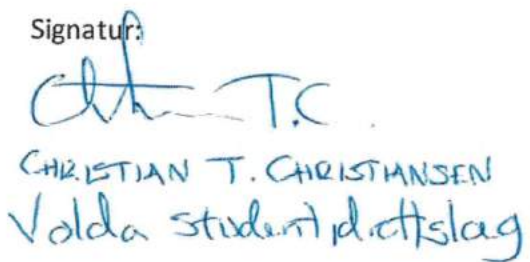 Signatur:
T.C.
CHRISTIAN T. CHRISTIANSEN
Volda studentidrettslag